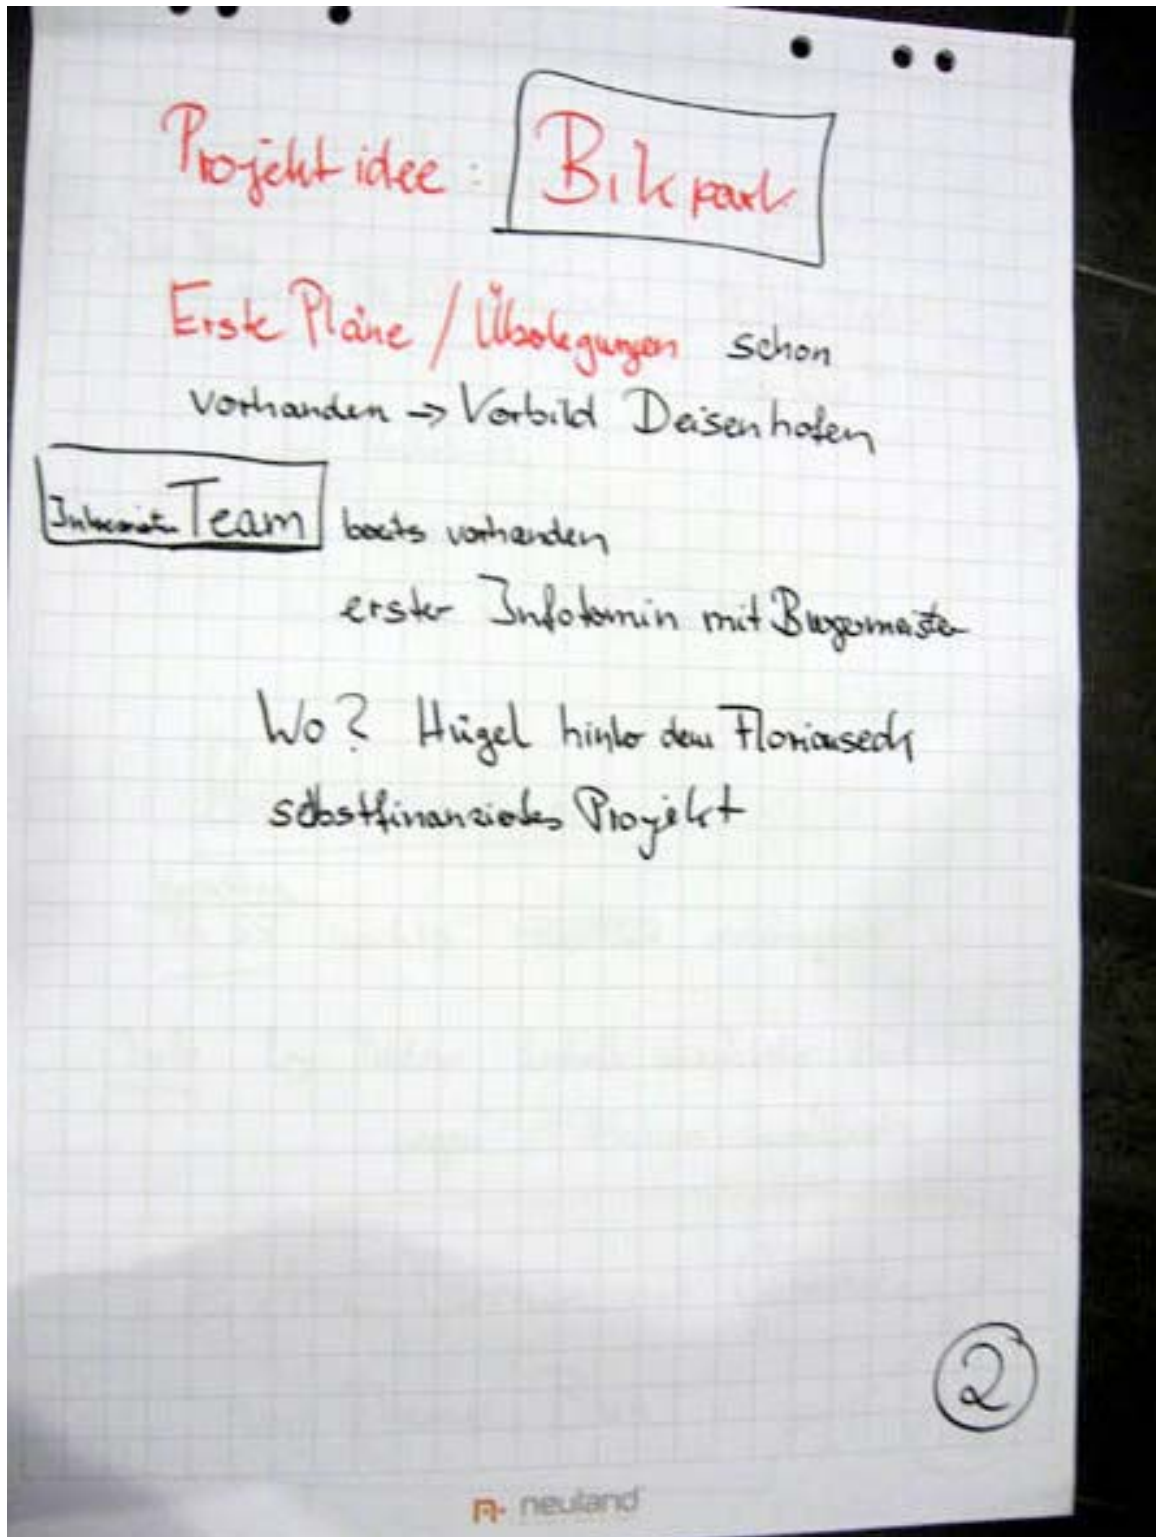 Projektidee: Bikpark
Erste Pläne / Überlegungen schon
vorhanden → Vorbild Deisenhofen
Team bereits vorhanden
erster Infotermin mit Bürgermeister
Wo? Hügel hinter dem Florianseck
selbstfinanziertes Projekt
2
neuland